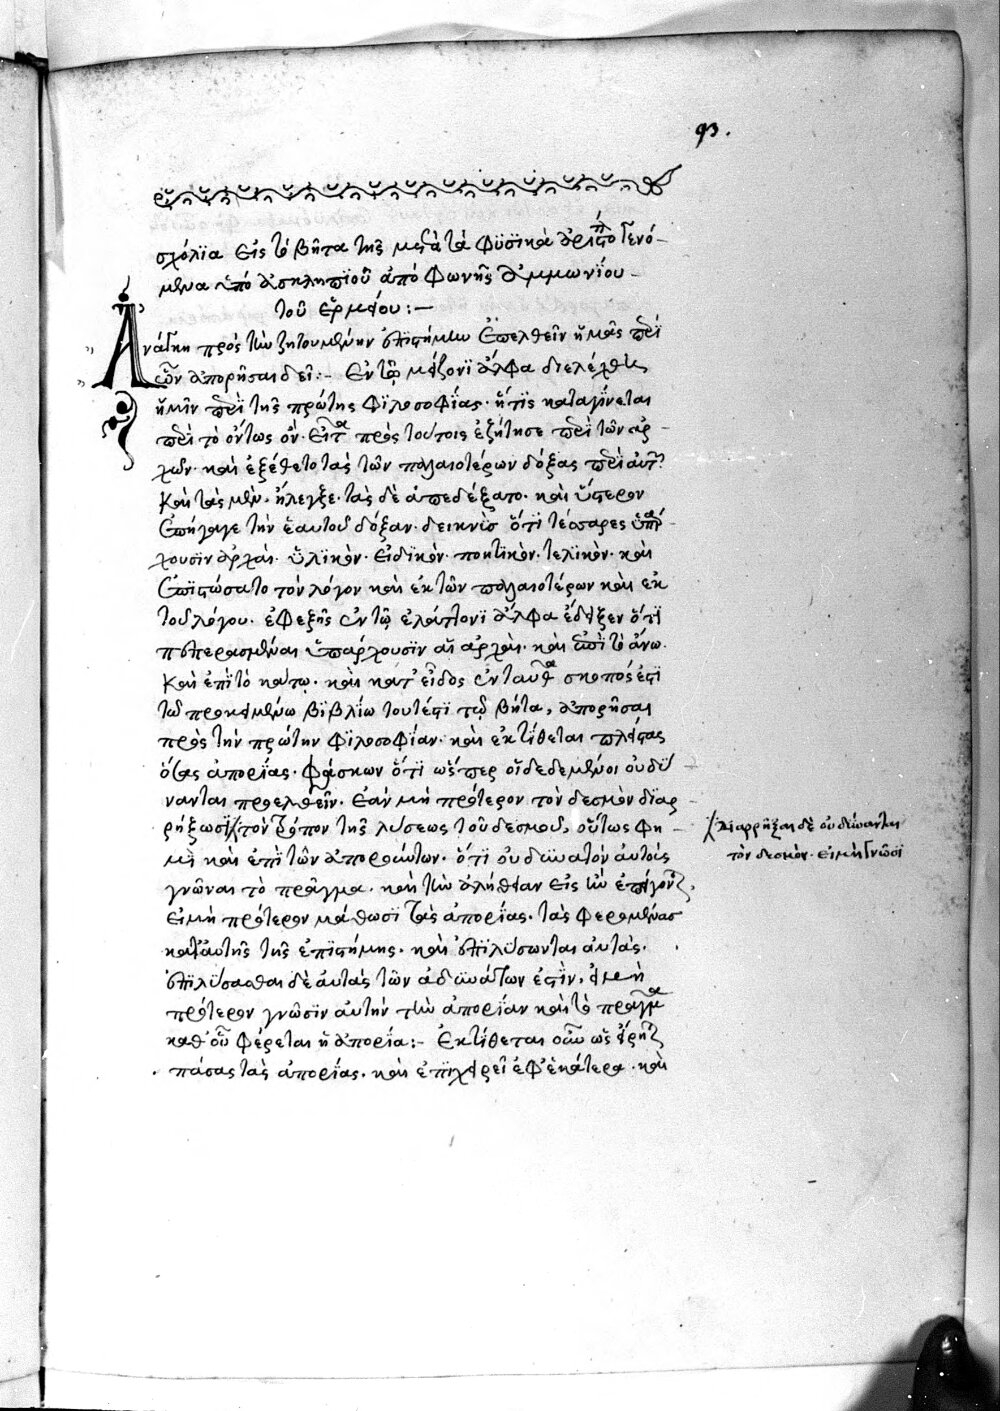 93.
σχόλϊα εἰς τὸ βῆτα τῆς μετὰ τὰ φϋσϊκὰ ἀριστο γενό-
μενα ὑπὸ ἀσκληπϊοῦ ἀπὸ φωνῆς ἀμμωνΐου -
τοῦ ἑρμείου:-
Ἀνάγκη πρὸς τὴν ζητουμένην ἐπιστήμην ἐπελθεῖν ἡμᾶς περὶ
ὧν ἀπορῆσαι δεῖ:- Ἐν τῷ μείζονϊ ἄλφα διελέχθη
ἡμῖν περὶ τῆς πρώτης φϊλοσοφΐας· ἥτϊς καταγΐνεται
περὶ τὸ ὄντως ὄν· εἶτα πρὸς τούτοις ἐζήτησε περὶ τῶν ἀρ-
χῶν· καὶ ἐξέθετο τὰς τῶν παλαιοτέρων δόξας περὶ αὐτῶν
καὶ τὰς μὲν, ἤλεγξε· τὰς δὲ ἀπεδέξατο· καὶ ὕστερον
ἐπήγαγε τὴν ἑαυτοῦ δόξαν· δεικνὺς ὅτϊ τέσσαρες ὑπάρ-
χουσιν ἀρχαὶ· ὑλϊκὸν· εἰδϊκὸν· ποιητϊκὸν· τελϊκὸν· καὶ
ἐπϊστώσατο τὸν λόγον καὶ ἐκ τῶν παλαιοτέρων καὶ ἐκ
τοῦ λόγου· ἐφεξῆς ἐν τῷ ἐλάττονϊ ἄλφα ἔδειξεν ὅτϊ
πεπερασμέναι ὑπάρχουσϊν αἱ ἀρχαὶ· καὶ ἐπὶ τὸ ἄνω·
καὶ ἐπὶ τὸ κάτω· καὶ κατ' εἶδος ἐνταῦθα σκοπός ἐστι
τῶ προκειμένω βϊβλίω τουτέστι τῷ βῆτα, ἀπορῆσαι
πρὸς τὴν πρώτην φϊλοσοφΐαν· καὶ ἐκτΐθεται πλείστας
ὅσας ἀπορΐας· φάσκων ὅτϊ ὥσπερ οἱ δεδεμένοι οὐ δύ
νανται προελθεῖν· ἐὰν μὴ πρότερον τὸν δεσμὸν διαρ-
ρήξωσϊ τὸν τρόπον τῆς λύσεως τοῦ δεσμοῦ, οὕτως φη-
σὶ καὶ ἐπὶ τῶν ἀπορούντων· ὅτϊ οὐ δυνατὸν αὐτοὺς
γνῶναι τὸ πρᾶγμα· καὶ τὴν ἀλήθειαν εἰς ἣν ἐπείγονται,
εἰ μὴ πρότερον μάθωσϊ τὰς ἀπορίας· τὰς φερομένας
κατ' αὐτῆς τῆς ἐπϊστήμης· καὶ ἐπϊλύσωνται αὐτὰς·
ἐπϊλύσασθαι δὲ αὐτὰς τῶν ἀδυνάτων ἐστὶν, εἰ μὴ
πρότερον γνῶσϊν αὐτὴν τὴν ἀπορίαν καὶ τὸ πρᾶγμα
καθ' οὗ φέρεται ἡ ἀπορΐα:- Ἐκτίθεται οὖν ὡς εἴρηται
πάσας τὰς ἀπορίας· καὶ ἐπϊχειρεῖ ἐφ' ἑκάτερα· καὶ
διαρρῆξαι δὲ οὐ δύνανται
τὸν δεσμὸν· εἰ μὴ γνῶσϊ